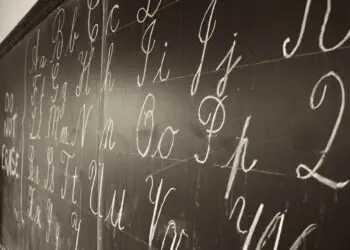 DO
NOT
ERASE
Aa Bb Cc D
Ff Gg Hh Ii Jj K
Ll Mm Nn Oo Pp Q
Rr Ss Tt Uu Vv Ww
Xx Yy Zz